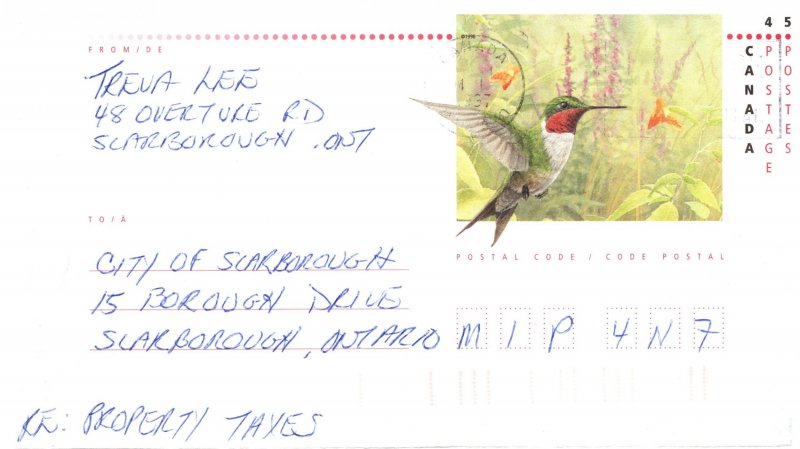 45
CANADA
POSTAGE
POSTES
©1998
FROM/DE
TREVA LEE
48 OVERTURE RD
SCARBOROUGH . ONT
TO/À
CITY OF SCARBOROUGH
15 BOROUGH DRIVE
SCARBOROUGH, ONTARIO
POSTAL CODE / CODE POSTAL
M1P 4N7
RE: PROPERTY TAXES